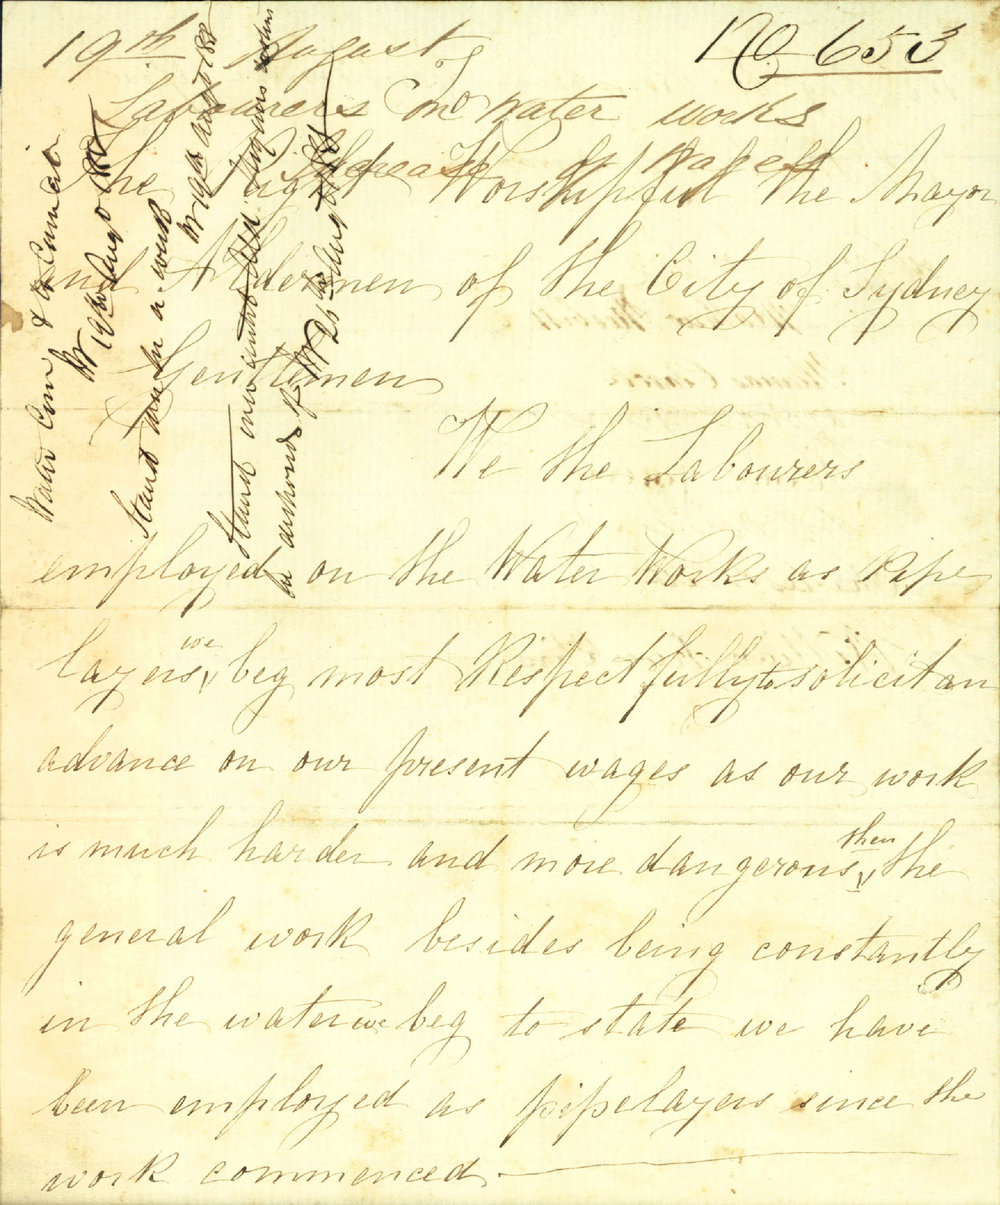 No 653
19th August
Labourers on water works
Increase of wages
The Right Worshipful the Mayor
and Aldermen of the City of Sydney
Gentlemen
We the Labourers
employed on the Water Works as Pipe
layers we beg most Respectfully to solicit an
advance on our present wages as our work
is much harder and more dangerous then the
general work besides being constantly
in the water we beg to state we have
been employed as pipelayers since the
work commenced
Water Com
19th Augt
Stand over for a week
19th August
Stand over until
26th Augt